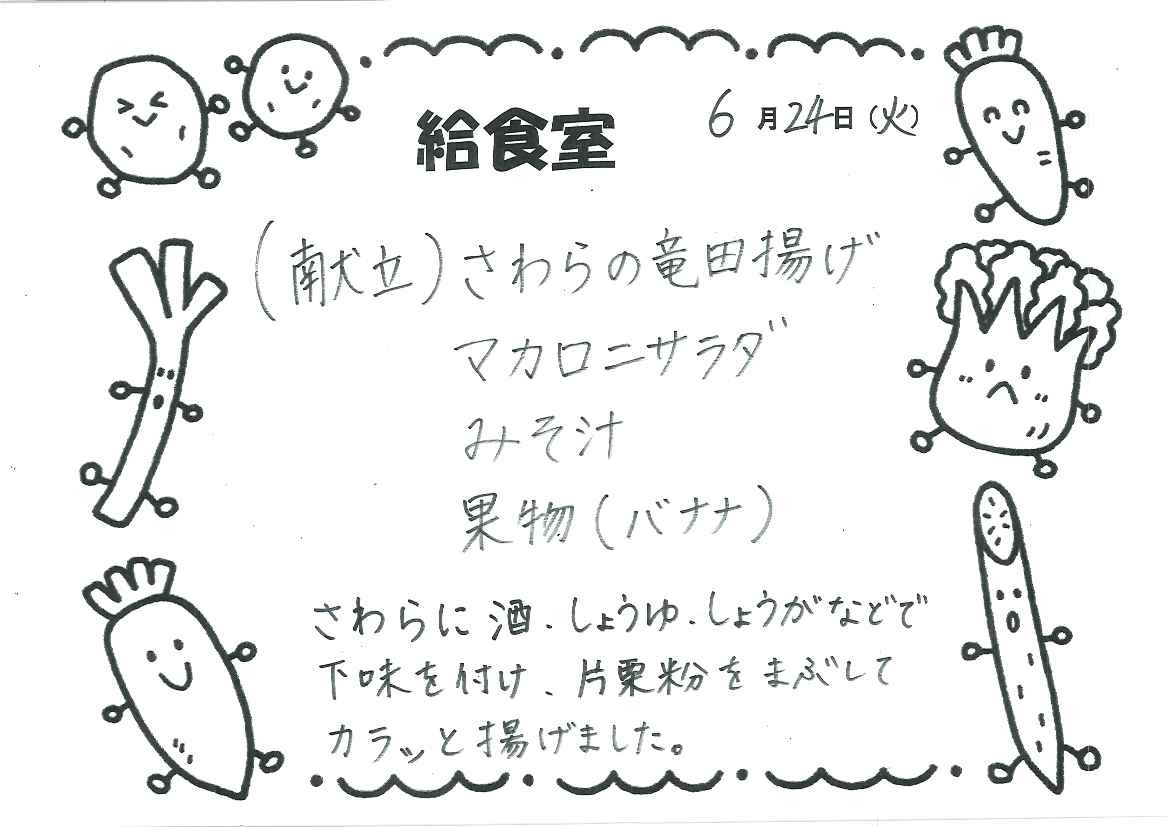 給食室
6月24日(火)
(献立)さわらの竜田揚げ
マカロニサラダ
みそ汁
果物(バナナ)
さわらに酒、しょうゆ、しょうがなどで
下味を付け、片栗粉をまぶして
カラッと揚げました。